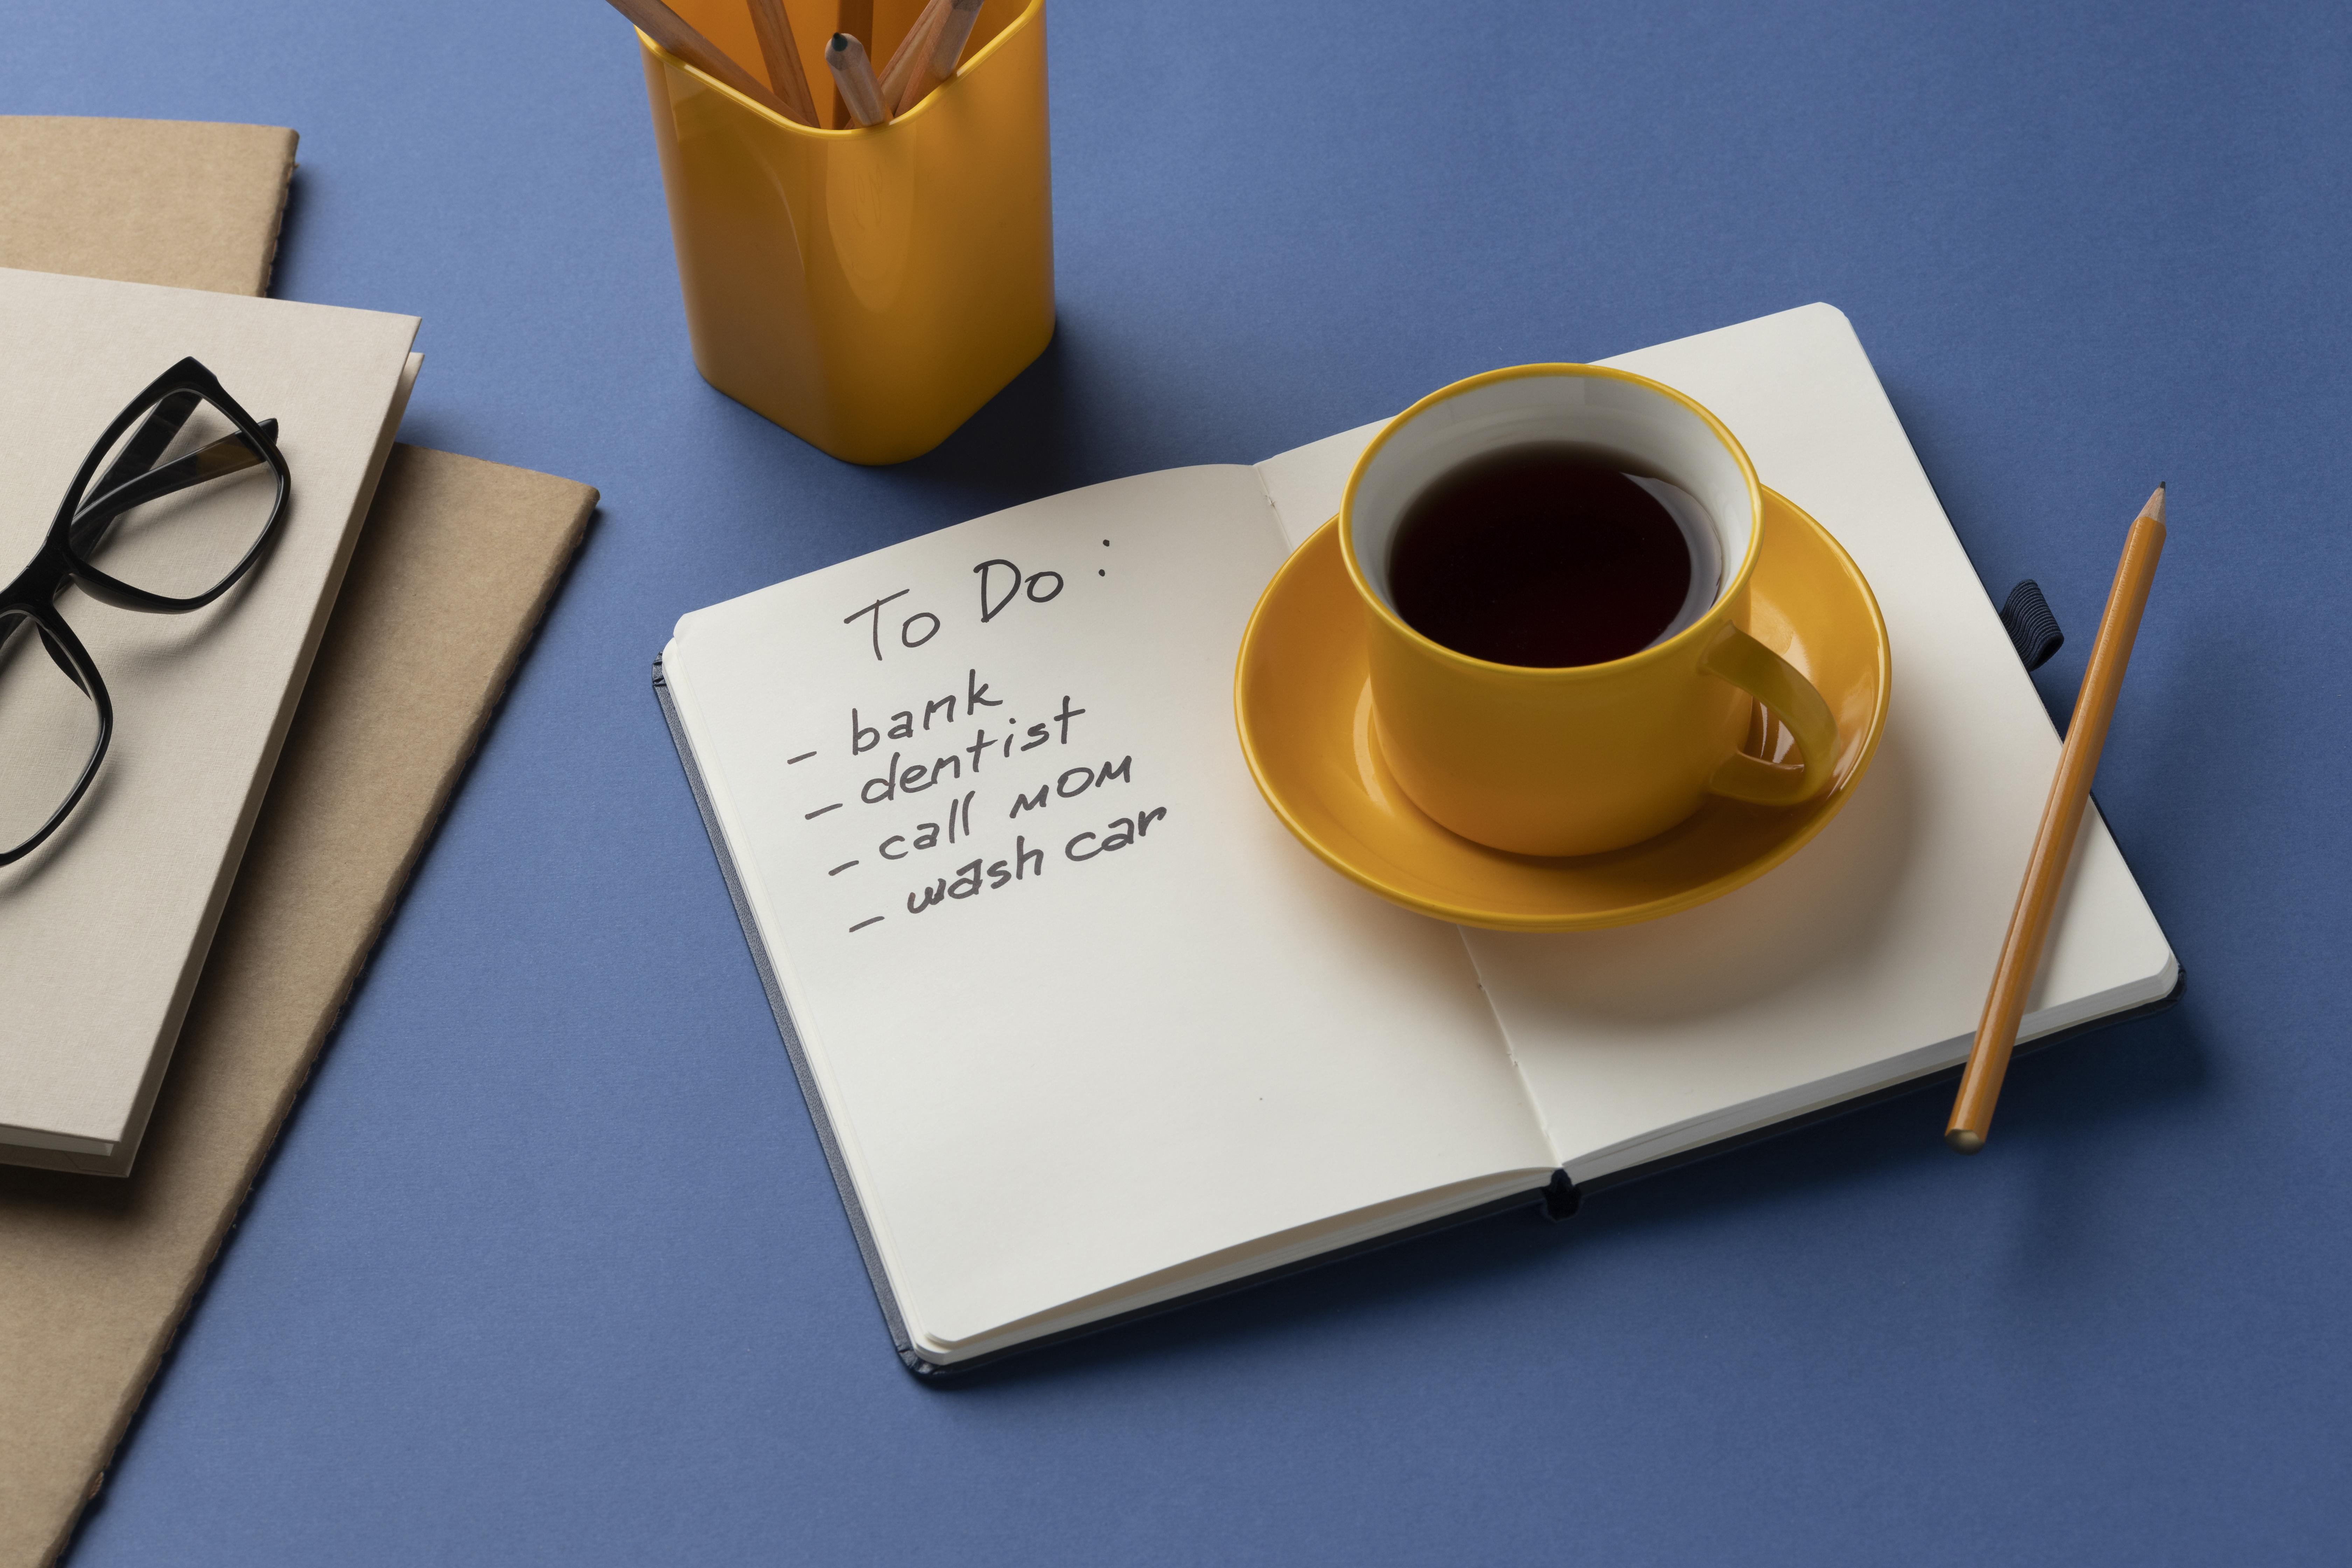 To Do :
- bank
- dentist
- call mom
- wash car